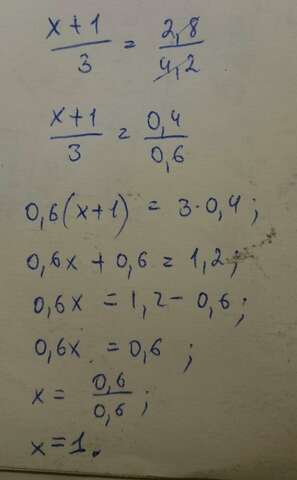 x+1/3 = 2,8/4,2
x+1/3 = 0,4/0,6
0,6(x+1) = 3·0,4;
0,6x + 0,6 = 1,2;
0,6x = 1,2 - 0,6;
0,6x = 0,6;
x = 0,6/0,6;
x=1.